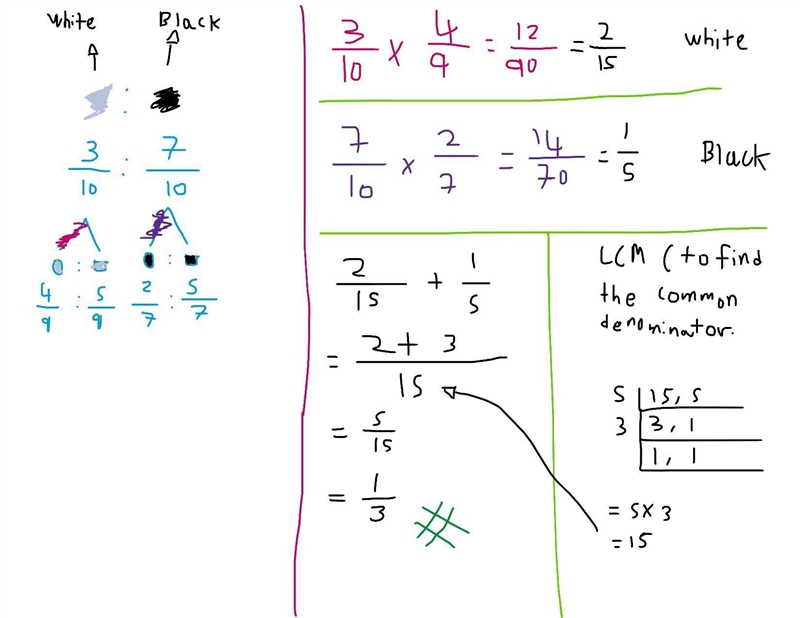 white Black
:
3/10 : 7/10
: :
4/9 : 5/9 2/7 : 5/7
3/10 x 4/9 = 12/90 = 2/15 white
7/10 x 2/7 = 14/70 = 1/5 Black
2/15 + 1/5
= 2 + 3/15
= 5/15
= 1/3
LCM (to find
the common
denominator.
5 15, 5
3 3, 1
1, 1
= 5x3
= 15